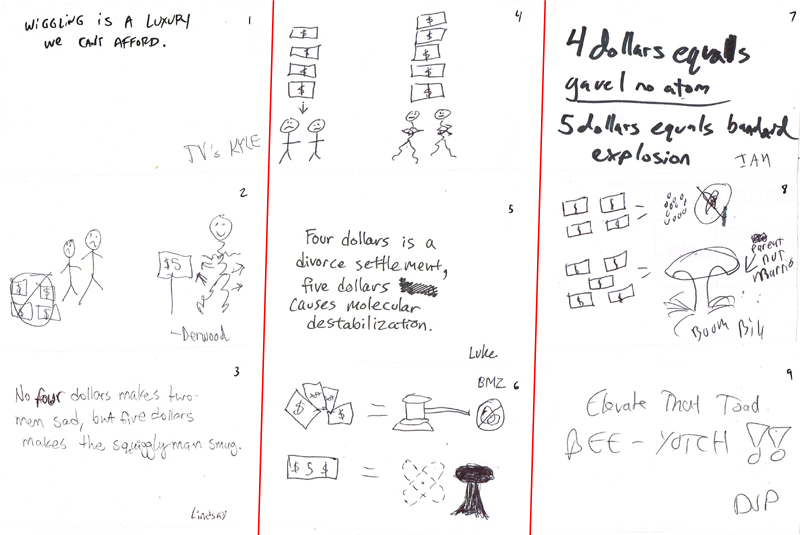 1
WIGGLING IS A LUXURY
WE CAN'T AFFORD.
TV's KYLE
2
$5
$ $
$ $
-Derwood
3
No four dollars makes two
men sad, but five dollars
makes the squiggly man smug.
Lindsay
4
$ $
$ $
$ $
$ $
$
5
Four dollars is a
divorce settlement,
five dollars
causes molecular
destabilization.
Luke
BMZ 6
$ $ =
$ $ $ =
7
4 dollars equals
gavel no atom
5 dollars equals
explosion
IAN
8
$ $ =
$ $
$ $
$ =
$ $
parent
nut
Boom Bill
9
Elevate That Toad
BEE-YOTCH !!